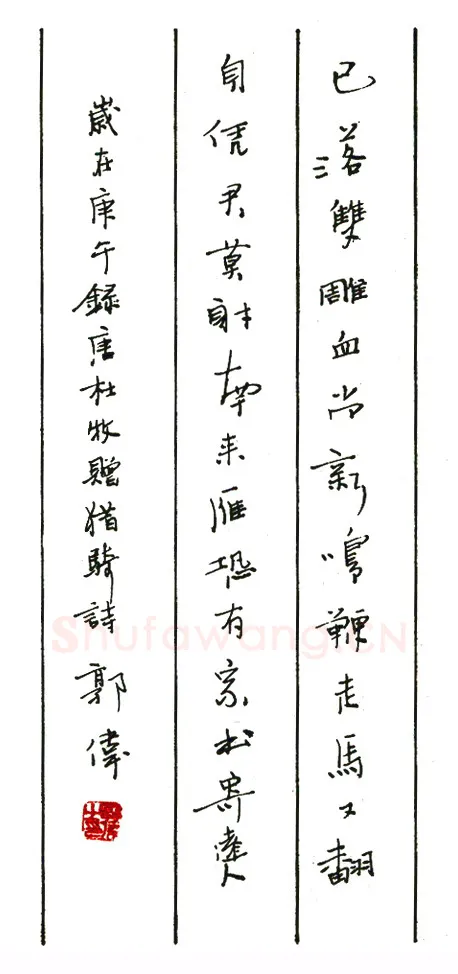 已落雙雕血尚新鳴鞭走馬又翻
身凭君莫射南来雁恐有家书寄遠人
歲在庚午録唐杜牧贈猎騎詩 郭偉
Shufawang.CN